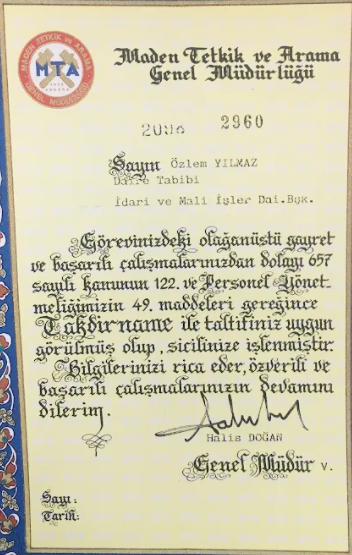 MADEN TETKİK ve ARAMA
MTA
1935
ANKARA
GENEL MÜDÜRLÜĞÜ
Maden Tetkik ve Arama
Genel Müdürlüğü
2960
Sayın Özlem YILMAZ
Daire Tabibi
İdari ve Mali İşler Dai.Bşk.
Görevinizdeki olağanüstü gayret
ve başarılı çalışmalarınızdan dolayı 657
sayılı kanunun 122. ve Personel Yönet-
meliğimizin 49. maddeleri gereğince
Takdirname ile taltifiniz uygun
görülmüş olup, sicilinize işlenmiştir.
Bilgilerinizi rica eder, özverili ve
başarılı çalışmalarınızın devamını
dilerim.
Halis DOĞAN
Genel Müdür v.
Sayı:
Tarih: